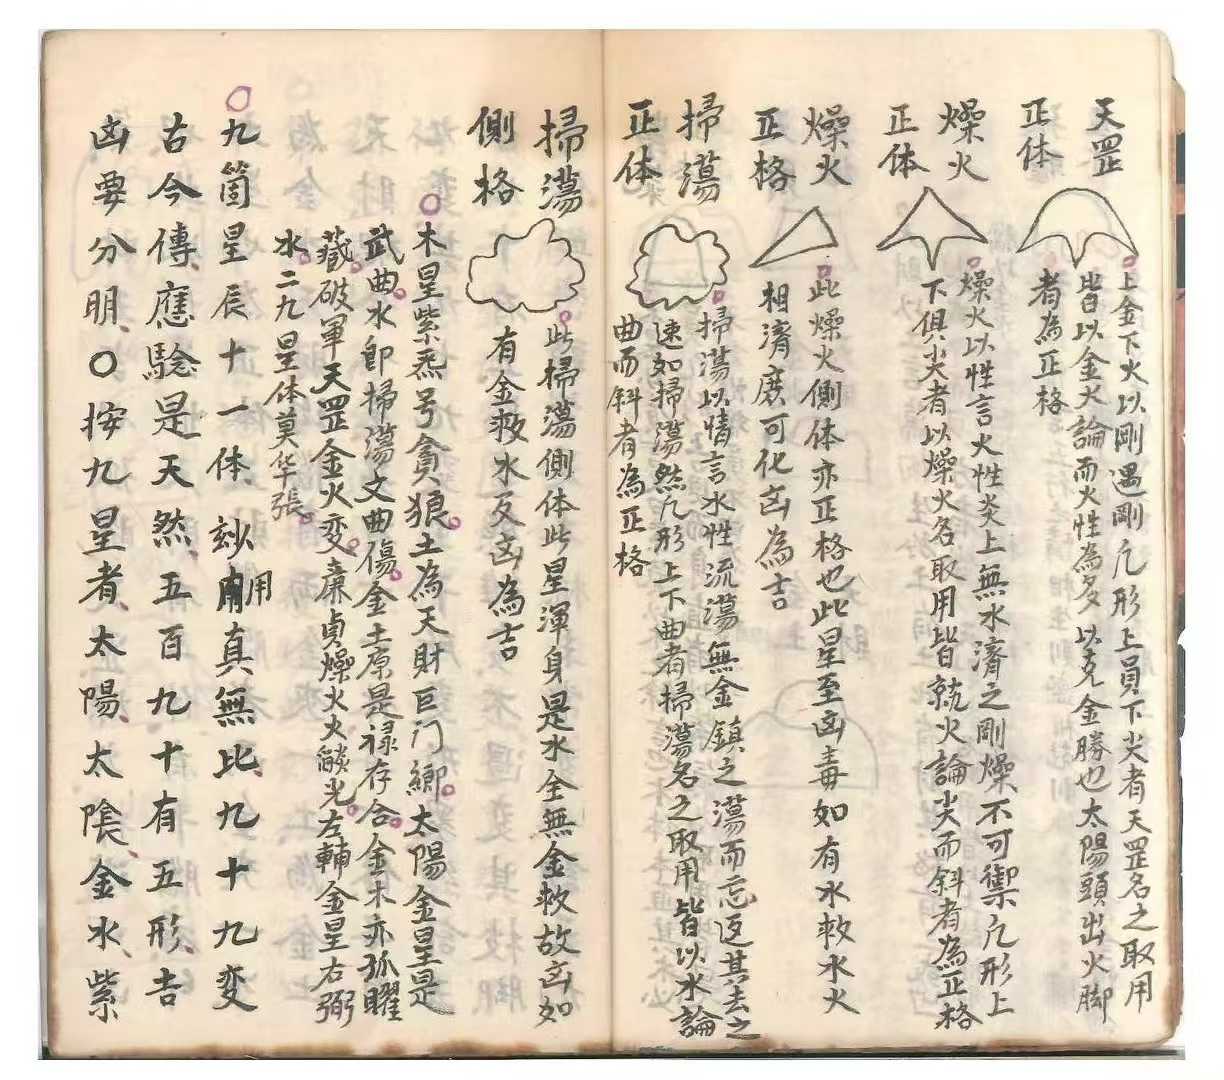 天罡
正体
上金下火以剛遇剛凢形上員下尖者天罡名之取用
皆以金火論而火性為多以克金勝也太陽頭出火脚
者為正格
燥火
正体
燥火以性言火性炎上無水濟之剛燥不可禦凢形上
下俱尖者以燥火名取用皆就火論尖而斜者為正格
燥火
正格
此燥火側体亦正格也此星至凶毒如有水救水火
相濟庶可化凶為吉
掃蕩
正体
掃蕩以情言水性流蕩無金鎮之蕩而忘返其去之
速如掃蕩然凢形上下曲者掃蕩名之取用皆以水論
曲而斜者為正格
掃蕩
側格
此掃蕩側体此星渾身是水全無金救故凶如
有金救水反凶為吉
木星紫炁号貪狼土為天財巨门鄉太陽金星是
武曲水郎掃蕩文曲傷金土原是禄存合金木亦孤曜
藏破軍天罡金火变廉貞燥火火燄光左輔金星右弼
水二九星体莫华張
九箇星辰十一体玅用真無比九十九变
古今傳應騐是天然五百九十有五形吉
凶要分明〇按九星者太陽太隂金水紫